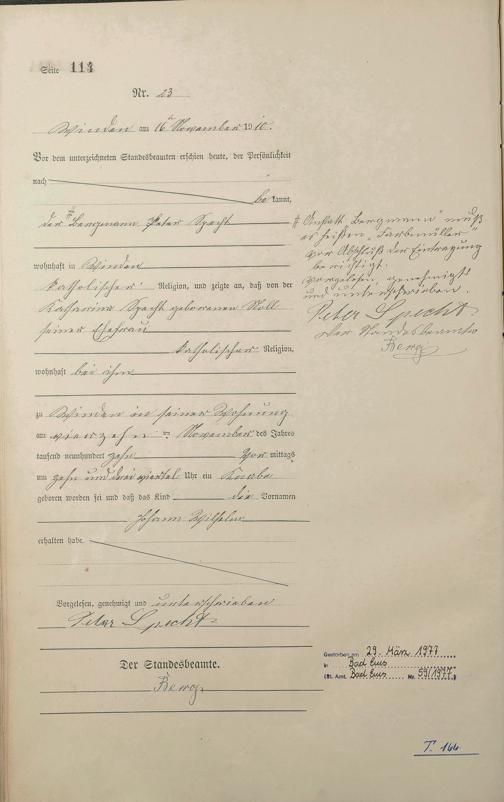 Seite 113
Nr. 23
Winden am 16ten November 1910.
Vor dem unterzeichneten Standesbeamten erschien heute, der Persönlichkeit
nach be kannt,
der # Bergmann Peter Specht
wohnhaft in Winden
katholischer Religion, und zeigte an, daß von der
Katharina Specht geborenen Noll
seiner Ehefrau
katholischer Religion,
wohnhaft bei ihm
zu Winden in seiner Wohnung
am vierzehnten November des Jahres
tausend neunhundert zehn Vor mittags
um zehn und drei viertel Uhr ein Knabe
geboren worden sei und daß das Kind die Vornamen
Johann Wilhelm
erhalten habe.
Vorgelesen, genehmigt und unterschrieben
Peter Specht
Der Standesbeamte.
Berg
# Anstatt „Bergmann" muß
es heißen „Farbmüller"
vor Abschluß der Eintragung
berichtigt.
Vorgelesen, genehmigt
und unterschrieben.
Peter Specht
Der Standesbeamte
Berg
Gestorben am 29. März 1977
in Bad Ems
(St. Amt. Bad Ems Nr. 59/1977)
T. 166